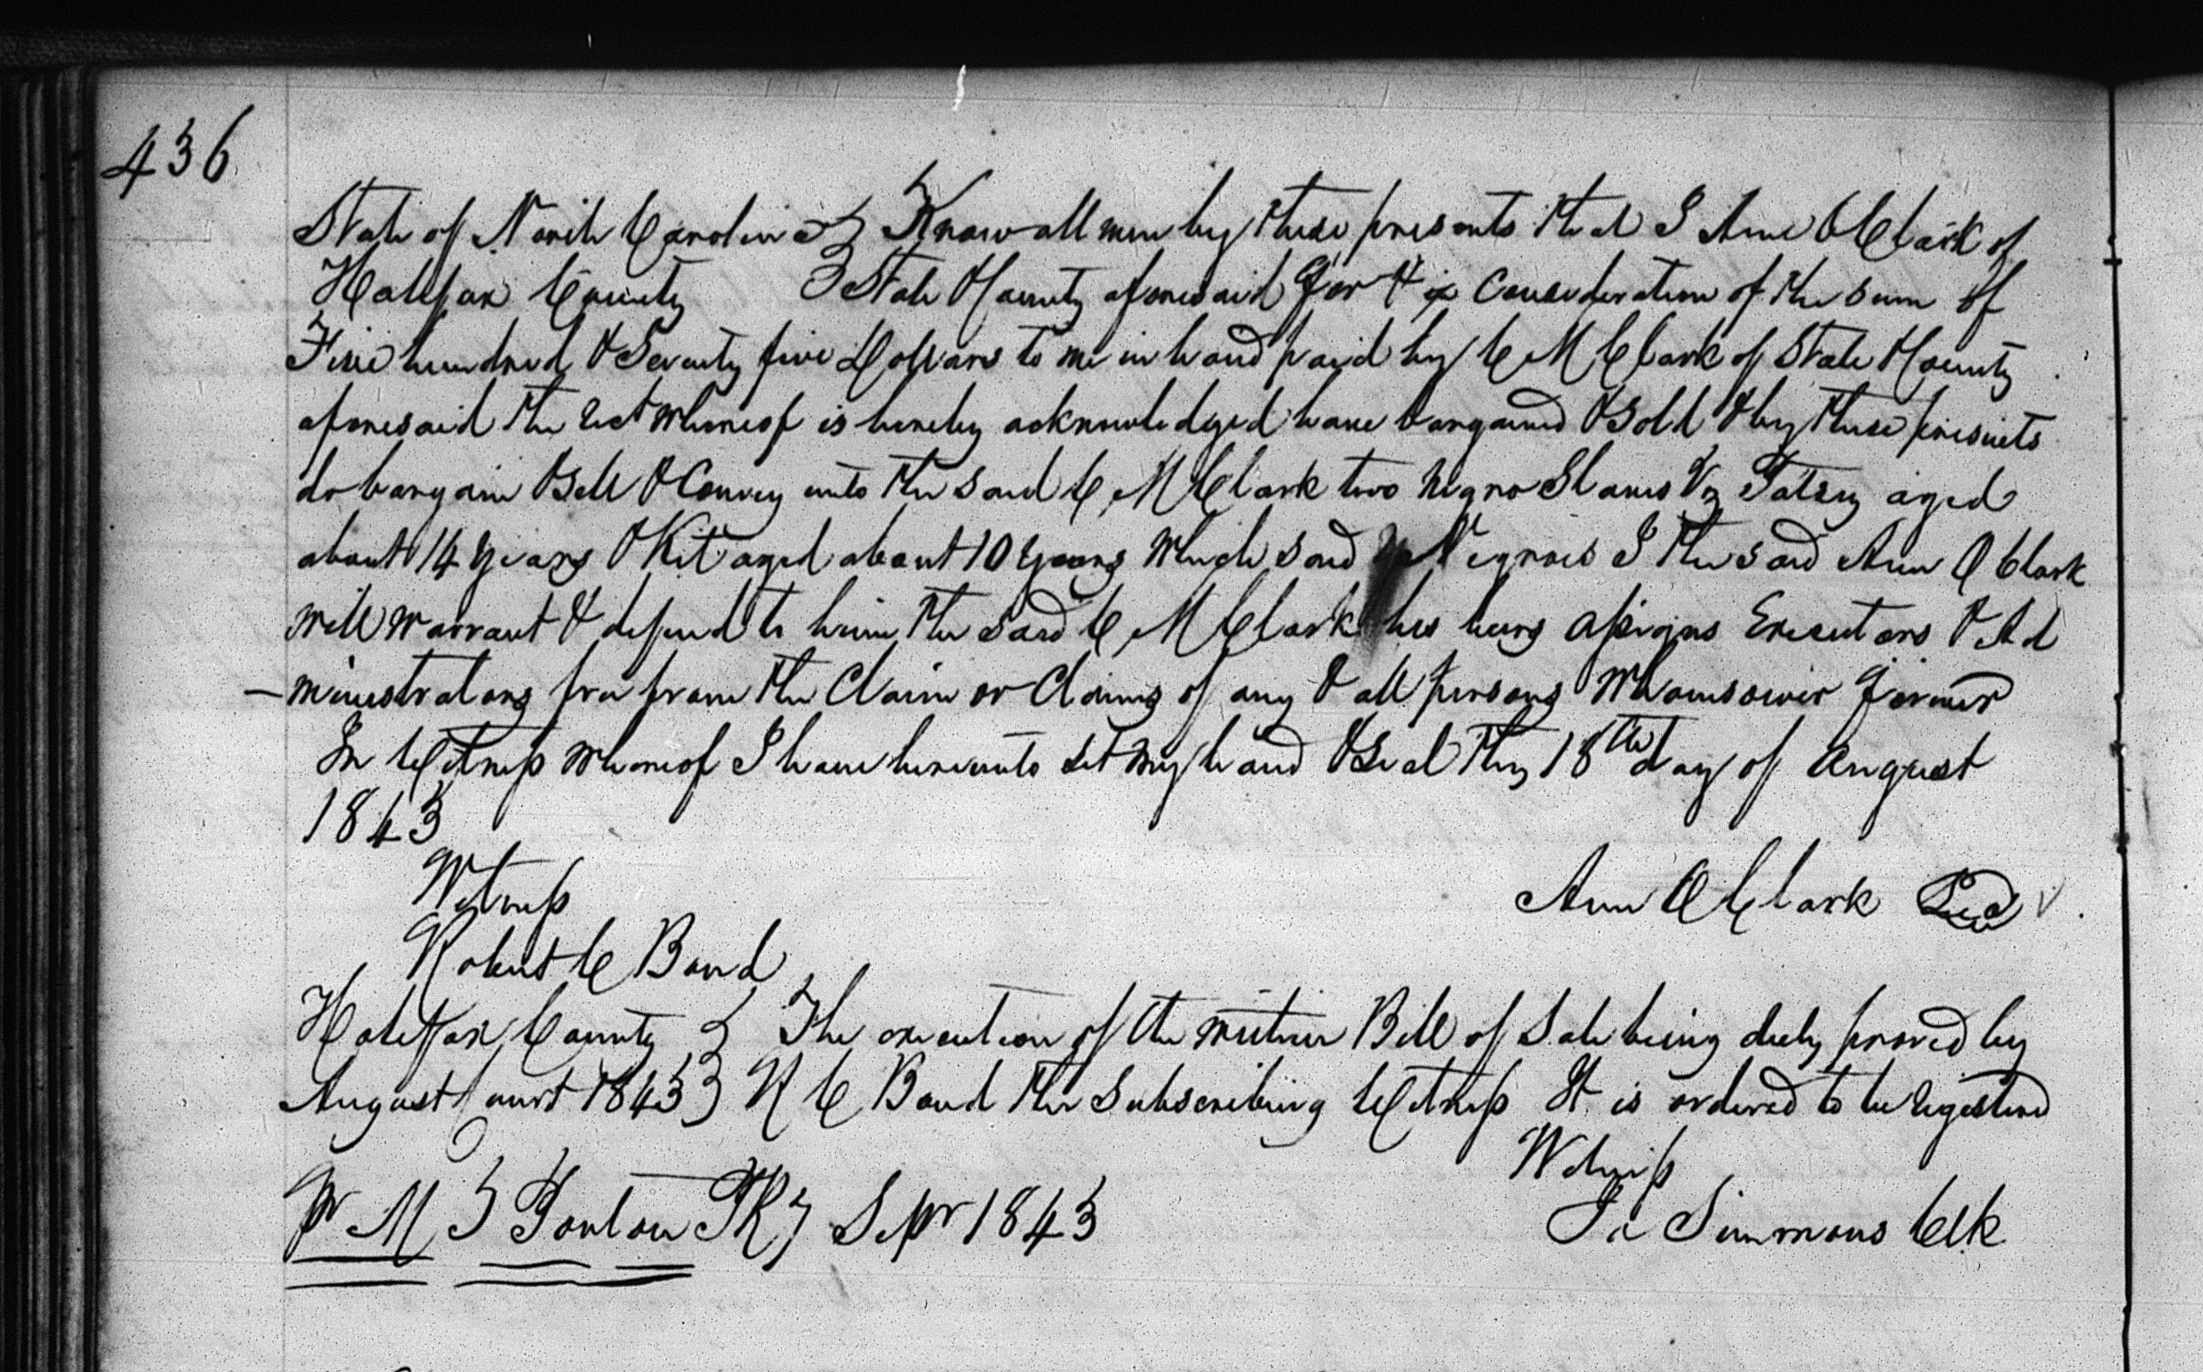 436
State of North Carolina } Know all men by these presents that I Ann O Clark of
Halifax County } State & County aforesaid for & in Consideration of the sum of
Five hundred & Seventy five Dollars to me in hand paid by C M Clark of State & County
aforesaid the rect whereof is hereby acknowledged have bargained & Sold & by these presents
do bargain & Sell & Convey unto the said C M Clark two Negro Slaves Viz Patsey aged
about 14 years & Kit aged about 10 years which said Negroes I the said Ann O Clark
will warrant & defend to him the said C M Clark his heirs assigns Executors & Ad
-ministrators free from the Claim or Claims of any & all persons Whomsoever forever
In Witness whereof I have hereunto set my hand & Seal this 18th day of August
1843
Witness
Ann O Clark Seal
Robert C Bond
Halifax County } The execution of the within Bill of Sale being duly proved by
August Court 1843 } R C Bond the Subscribing Witness It is ordered to be registered
Witness
Pr M Ponton PR 7 Sepr 1843
Simmons Clk